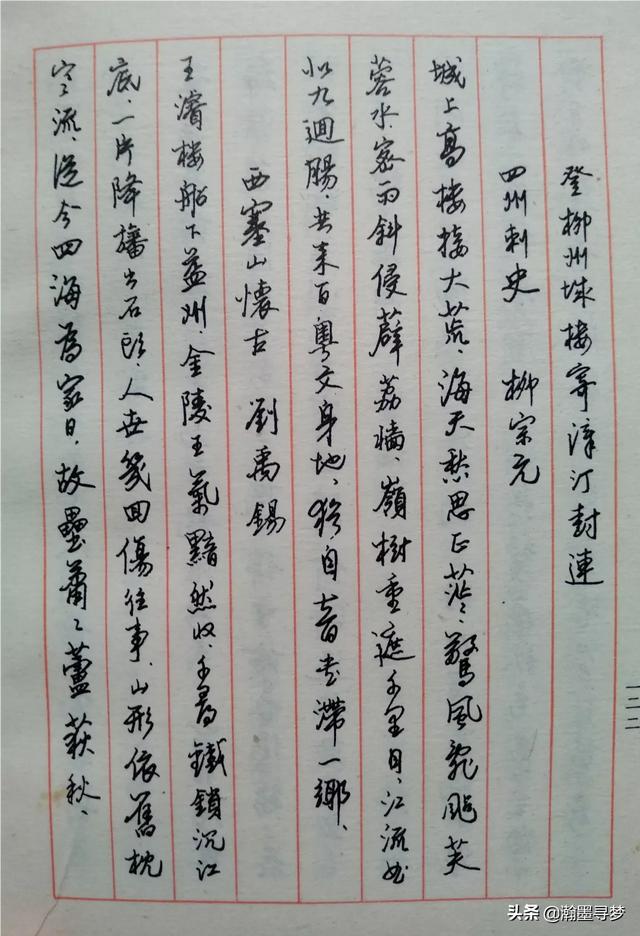 登柳州城樓寄漳汀封連
四州刺史　柳宗元
城上高樓接大荒、海天愁思正茫茫、驚風亂颭芙
蓉水、密雨斜侵薜荔墻、嶺樹重遮千里目、江流曲
似九迴腸、共來百粵文身地、猶自音書滯一鄉、
西塞山懷古　劉禹錫
王濬樓船下益州、金陵王氣黯然收、千尋鐵鎖沉江
底、一片降旛出石頭、人世幾回傷往事、山形依舊枕
寒流、從今四海為家日、故壘蕭〻蘆荻秋、
一二二
头条 @瀚墨寻梦